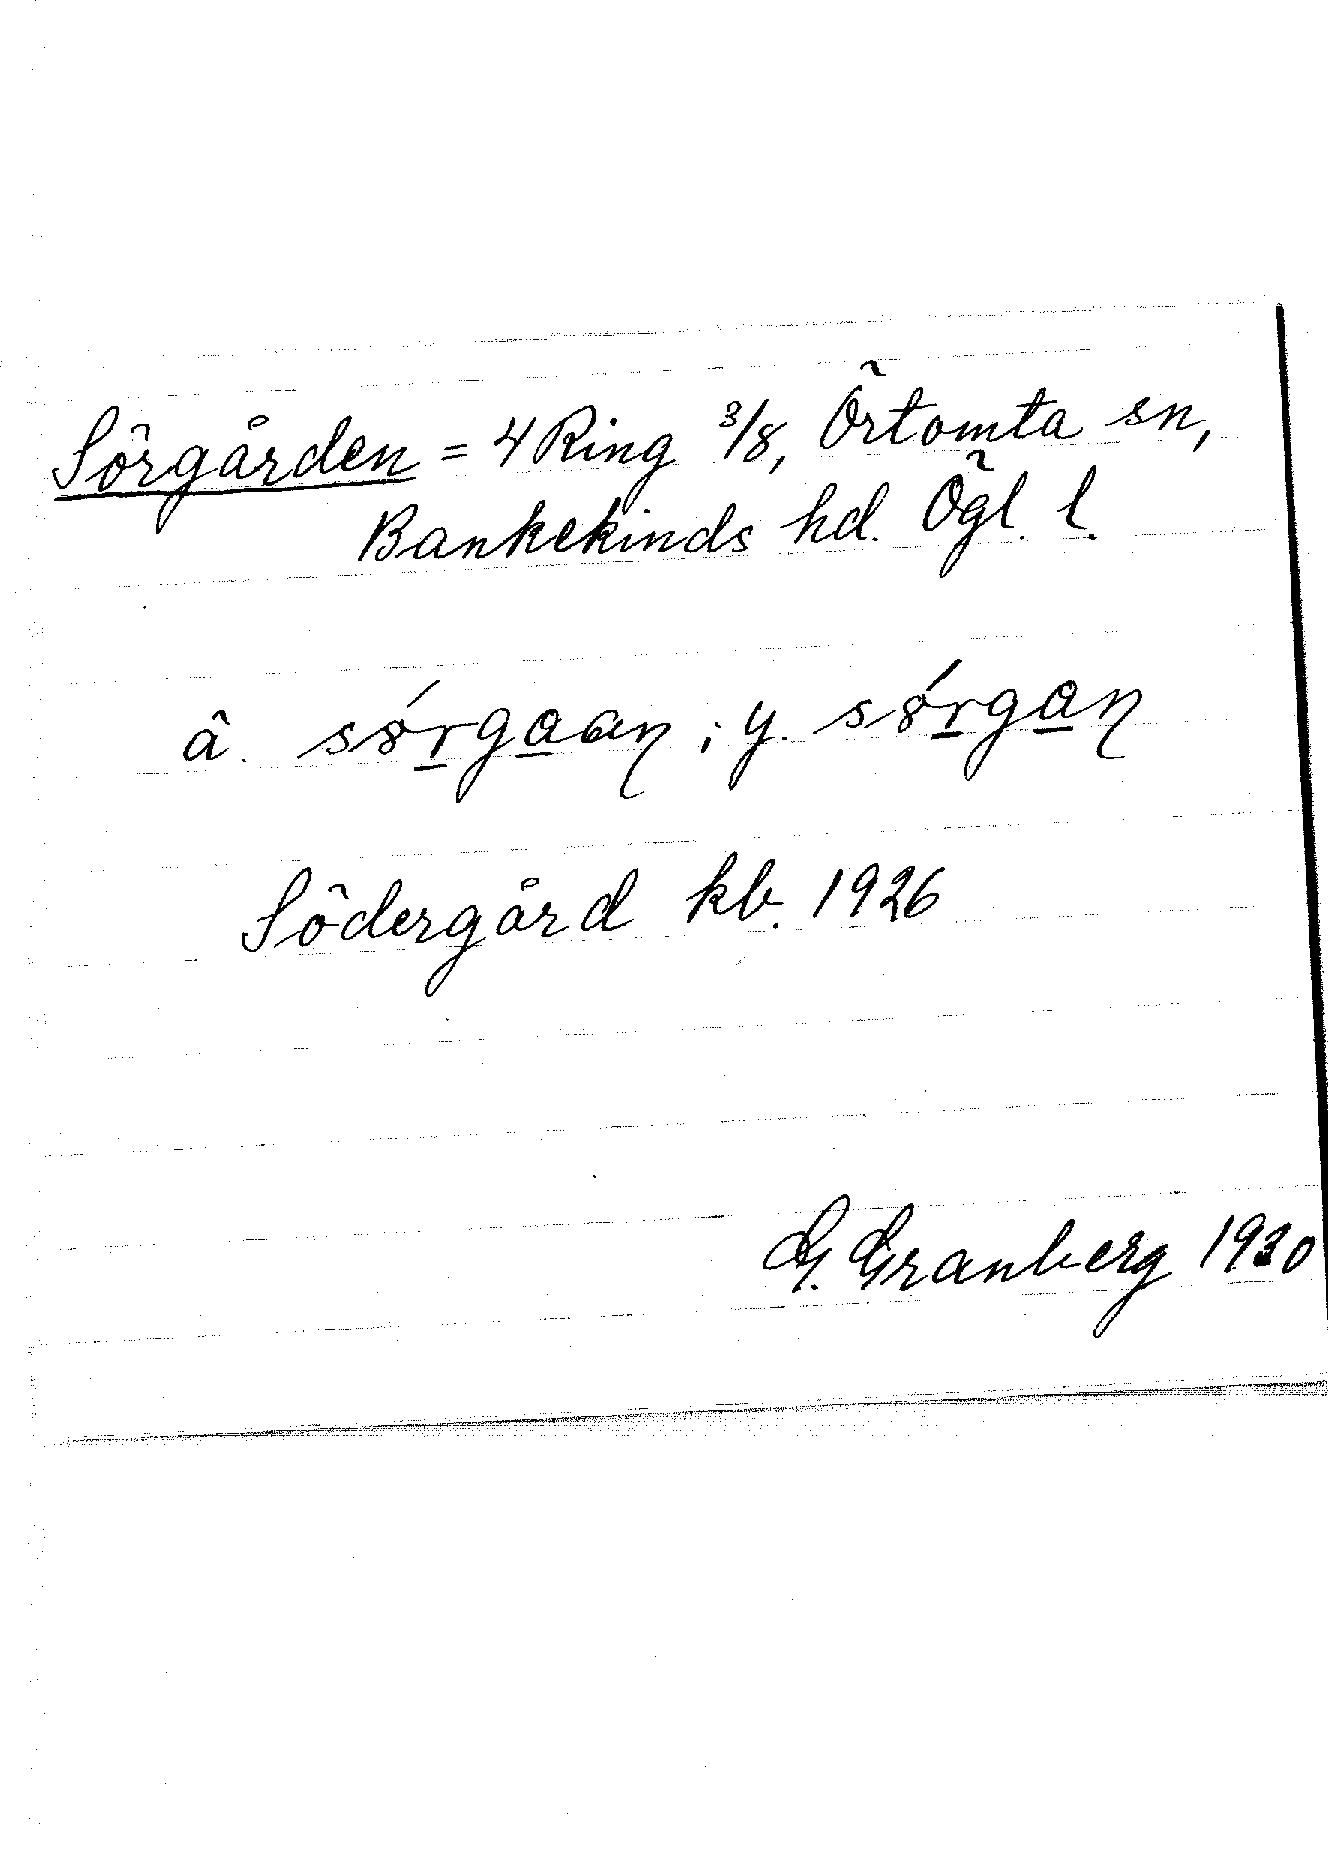 Sörgården = 4 Ring 3/8, Örtomta sn,
Bankekinds hd. Ögl. l.
ä. sǿrgaan ; y. sǿrgan
Södergård kb. 1926
G. Granberg 1930